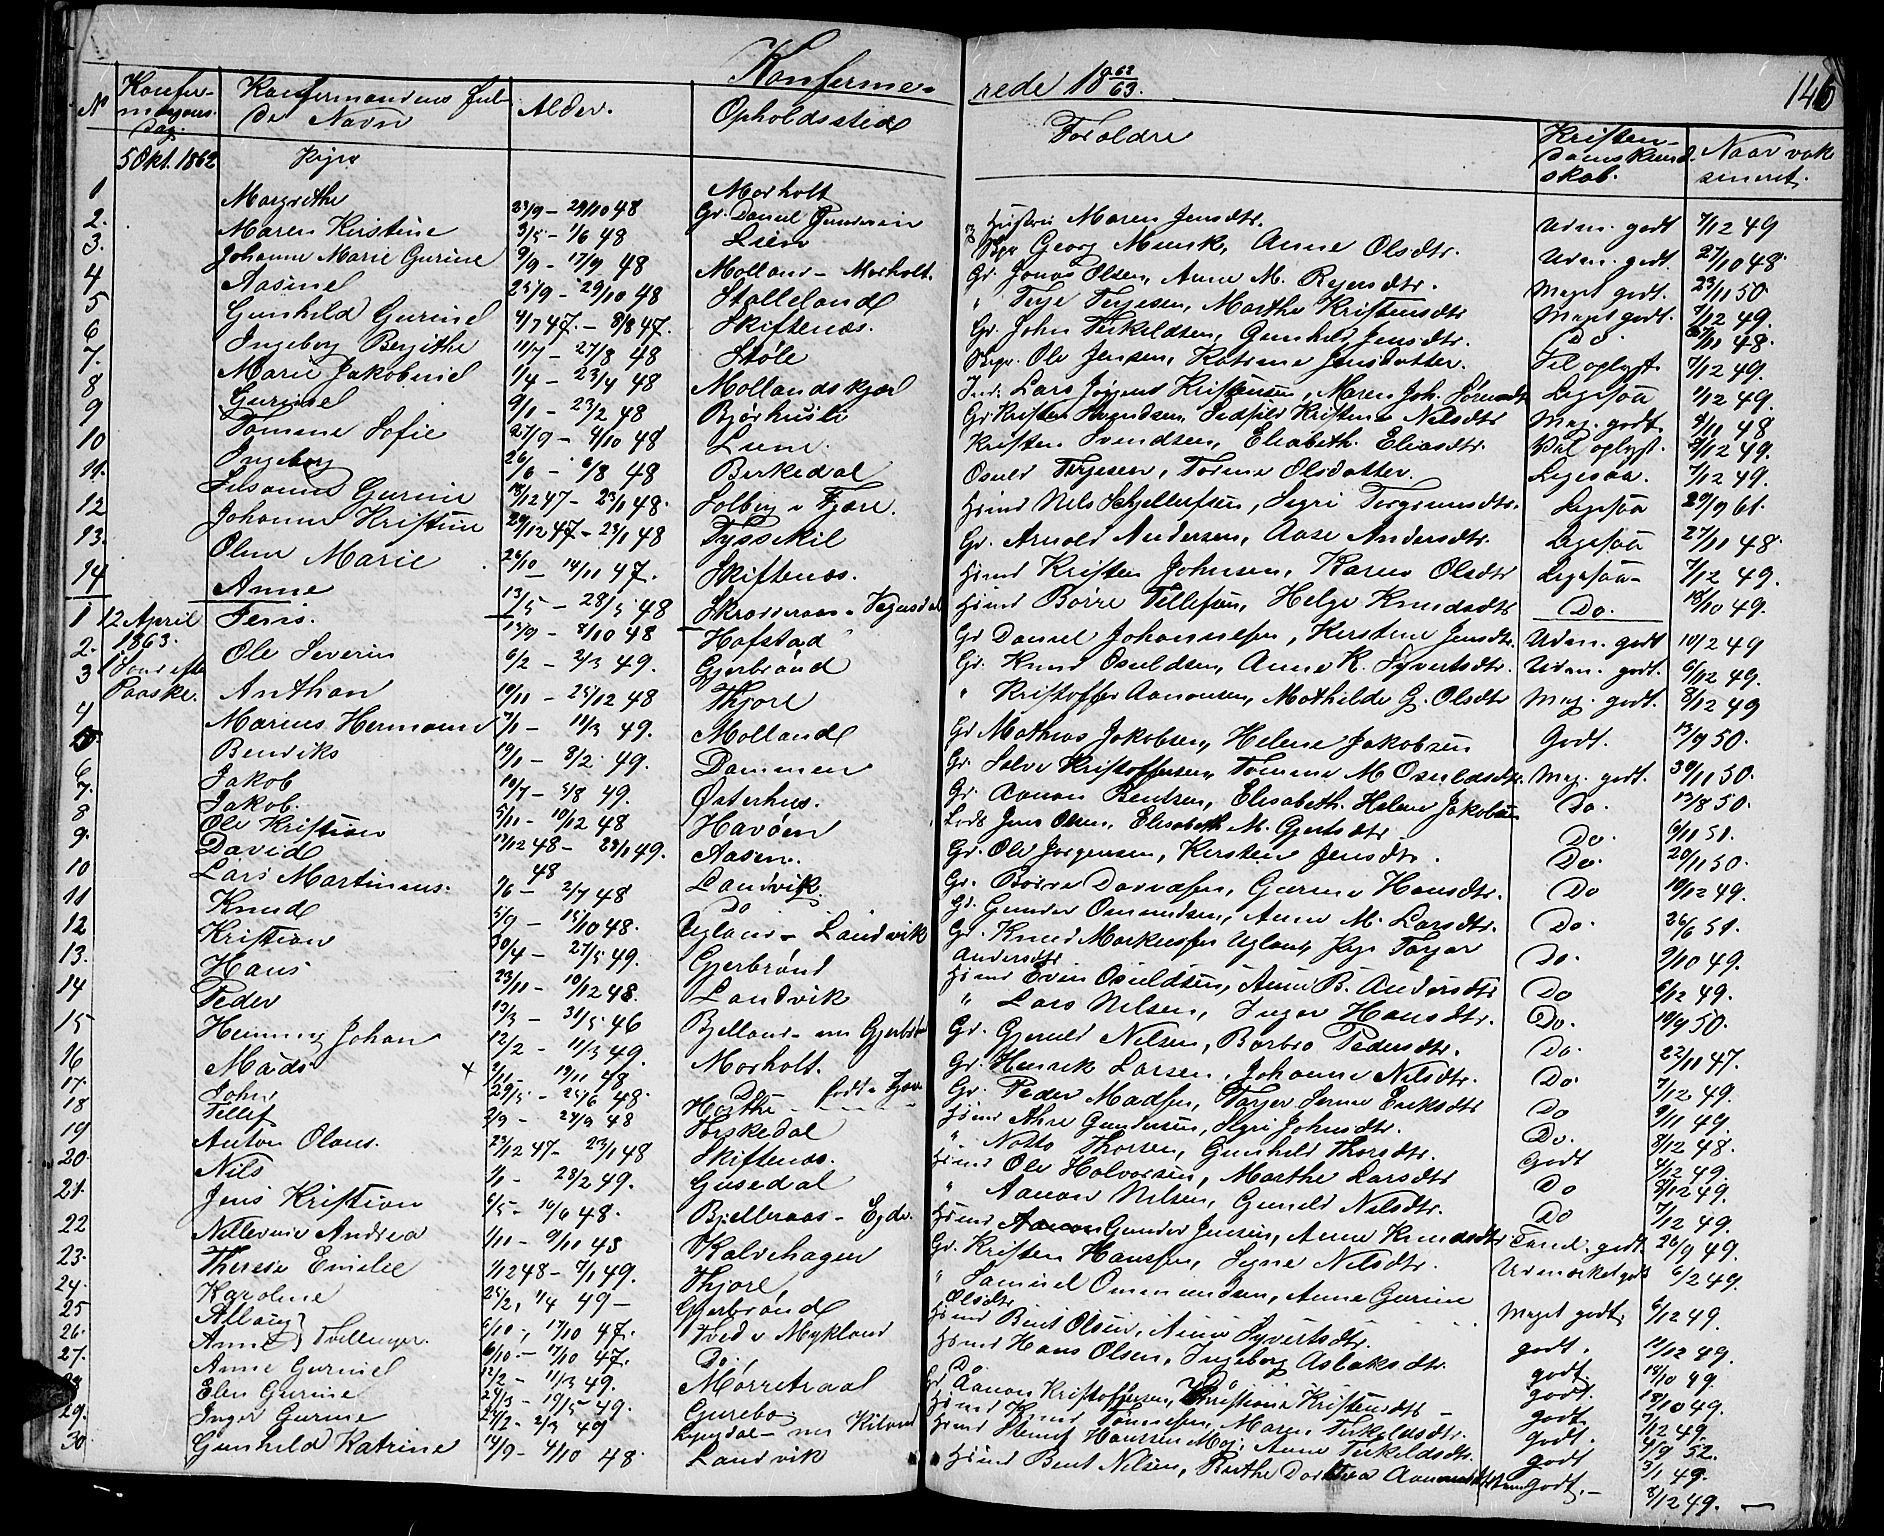 Konferme- rede 18 62/63. 146
N Konfer- mazions. Dag. Konfermandens ful- de Navn Alder. Opholdssted Foreldre Kristen- domskund- skab. Naar vak- sineret.
5 Okt. 1862 Piger
1 Margrithe 23/9 - 29/10 48 Morholt Maren Jensdtr. Udm. godt 7/12 49
2. Maren Kirstine 3/5 - 1/6 48 Gr. Daniel Lien Georg Munk, Anne Olsdtr. Udm. godt. 27/10 48.
3. Johanne Marie Gurine 9/9 - 17/9 48 Molland - Morholt. Gr. Jonas Olsen, Anne M. Reiersdtr. Meget godt. 23/11 50
4 Aasine 25/9 - 29/10 48 Stølleland " Terje Terjesen, Marthe Kristensdtr Meget godt. 7/12 49.
5 Gunhild Gurine 4/7 47. - 8/8 47. Skiftenæs. Gr. John Terkildsen, Gunhild Jensdtr. Do. 27/11 48.
6 Ingeborg Bergithe 11/7 - 27/8 48 Støle Ole Jensen, Katrine Jensdatter. Vel oplyst. 7/12 49.
7. Marie Jakobine 1/4 - 23/4 48 Mollandskjær Ind. Lars Jørgens Kristensen, Maren Joh. Sørensdtr Ligesaa 7/12 49.
8 Gurine 9/1 - 23/2 48 Bjørkusli Gr Kristen Kristine Nilsdtr Meg. godt. 8/11 48
9 Tomene Sofie 27/9 - 4/10 48 Lien. Kristen Svendsen, Elisabeth Eliasdtr. Vel oplyst. 7/12 49.
10 Ingeborg 26/6 - 6/8 48 Birkedal Osuld Terjesen, Tomine Olsdatter. Ligesaa. 7/12 49.
11. Gurine 18/12 47 - 23/1 48. Solberg i Fjære. Hsmd Nils Schjelleufsen, Segri Torgrimsdtr. Ligesaa 29/9 61.
12 Johanne Kristine 29/12 47 - 23/1 48 Dysselil Gr. Arnold Andersen, Aase Andersdtr. Ligesaa 27/11 48.
13. Oline Marie 26/10 - 14/11 47. Skiftenæs. Hsmd Kristen Johnsen, Karen Olsdtr Ligesaa- 7/12 49.
14 Anne 13/5 - 28/5 48 Skraaneraas - Vegusdal Hsmd Børre Tellefsen, Helge Knudsdtr Do. 18/10 49.
1 12 April Jens. 13/9 - 8/10 48 Hofstad Gr Daniel Johannesen, Kerstine Jensdtr. Udm. godt 10/2 49
2. 1863. Ole Severin 6/2 - 2/3 49. Gjerbrønd Gr. Knud Osuldsen, Anne K. Syvertsdtr. Udm. godt. 6/12 49.
3 1 Sønd. efter Anthon 19/11 - 25/12 48 Thjore " Kristoffer Aanonsen, Mathilde G. Olsdtr Meg. godt. 8/12 49
4 Paaske. Marius Hermann 7/1 - 11/3 49. Molland Gr Mathias Jakobsen, Helene Jakobsen Godt. 13/9 50.
5. Bendiks 19/1 - 8/2 49. Dammen Gr. Salve Kristoffersen, Tomine M Osuldsdtr. Meg. godt. 30/11 50.
6 Jakob 10/7 - 5/8 49. Østerhus. Gr. Aanon Bentsen, Elisabeth Helene Jakobsen Do. 13/8 50.
7. Jakob. 5/11 - 10/12 48 Havøen Lods Jens Olsen, Elisabeth M. Gjertsdtr Do. 6/11 51.
8 Ole Kristian 13/12 48 - 28/1 49. Aasen. Gr. Ole Jørgensen, Kerstine Jensdtr. Do. 20/11 50.
9. David 48 Landvik. Gr. Børre Davidsen, Gurine Hansdtr. Do 10/12 49.
10 Lars Martinius. 1/6 - 2/7 48 Do Gr. Gunder Omundsen, Anne M. Larsdtr. Do. 26/6 51.
11 Knud 5/9 - 15/10 48. Ugland - Landvik Gr. Knud Markussen Ugland, Tarjer Andersdtr Do. 9/10 49.
12 Kristian 30/4 - 27/5 49. Gjerbrønd Hsmd Even Osuldsen, Anne B. Andersdtr Do 6/12 49.
13. Hans 23/11 - 10/12 48. Landvik " Lars Nilsen, Inger Hansdtr. Do. 10/9 50.
14 Peder 13/3 - 31/5 46 Bjelland - nu Gjerbrønd Gr. Gjeruld Nilsen, Barbro Pedersdtr. Do. 22/11 47.
15 Henning Johan 12/2 - 11/3 49. Morholt. Gr. Henrik Larsen, Johanne Nilsdtr. Do. 7/12 49.
16 Mads x 2/11 - 19/11 48 Do - født i Fjære Gr. Peder Madsen, Tarjer Serine Eriksdtr Do 9/11 49.
17. John 29/5 - 25/6 48. Høgthe Hsmd Ahre Gundersen, Sigri Johnsdtr. Do. 8/12 48.
18 Tellef 2/9 - 24/9 48 Torskedal " Notto Thorsen, Gunhild Thorsdtr. Godt 4/12 49.
19 Anton Olaus. 22/12 47 - 23/1 48 Skiftenæs. Hsmd Ole Halvorsen, Marthe Larsdtr Do 8/12 49.
20. Nils 1/1 - 28/2 49. Gusedal " Aanon Nilsen, Gunild Nilsdtr. Do 7/12 49.
21. Jens Kristian 6/5 - 14/6 48. Bjelleraas - Egde. Hsmd Gunder Jensen, Anne Knudsdtr Tand. godt 26/9 49.
22 Nillevine Andrea 1/11 - 9/11 48 Kalvehagen Gr. Kristen Hansen, Signe Nilsdtr. Udmærket godt 6/2 49.
23. Therese Emilie 1/12 48 - 7/1 49. Thjore " Samuel Ommundsen, Anne Gurine Olsdtr Meget godt, 6/12 49.
24. Karoline 25/2, 1/4 49 - Gjerbrønd Hsmd Bent Olsen, Anne Syvertsdtr. godt. 11/12 49.
25 Aslaug } Tvillinger. 6/10 - 17/10 47. Tved i Mykland Hsmd Hans Olsen, Ingeborg Aslaksdtr. godt 18/10 49.
26. Anne 6/10 - 17/10 47. Do. Do godt. 18/10 49.
27. Anne Gurine 12/2 - 11/3 49. Mørretraal Gr Aanon Kristoffersen, Christiane Kristensdtr godt 7/12 49.
28 Elen Gurine 24/3 - 19/5 49. Gurebo Hsmd Knud Tønnesen, Maren Terkildsdtr. godt. 4/9 52.
29. Inger Gurine 24/2 - 2/3 49 nu Hsmd Hanssen Moi, Anne Terkildsdtr. godt 3/1 49.
30. Gunhild Katrine 14/9 - 4/10 48. Landvik Hsmd Bent Nilsen, Berthe Dorthea godt. - 8/12 49. -